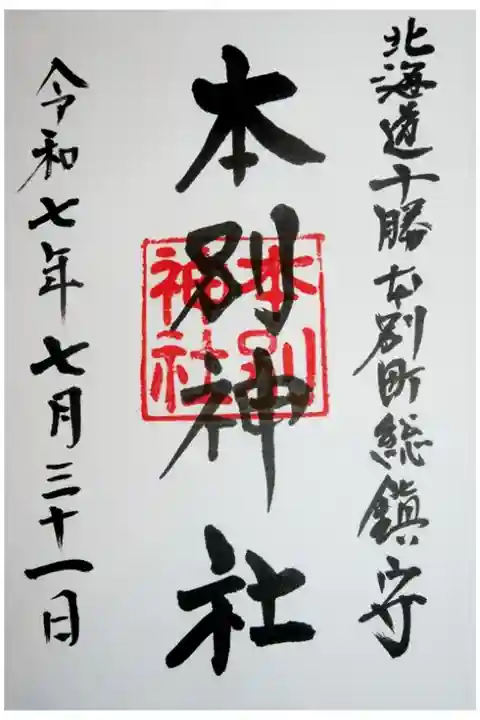 北海道十勝本別町総鎮守
本別神社
本別
神社
令和七年七月三十一日